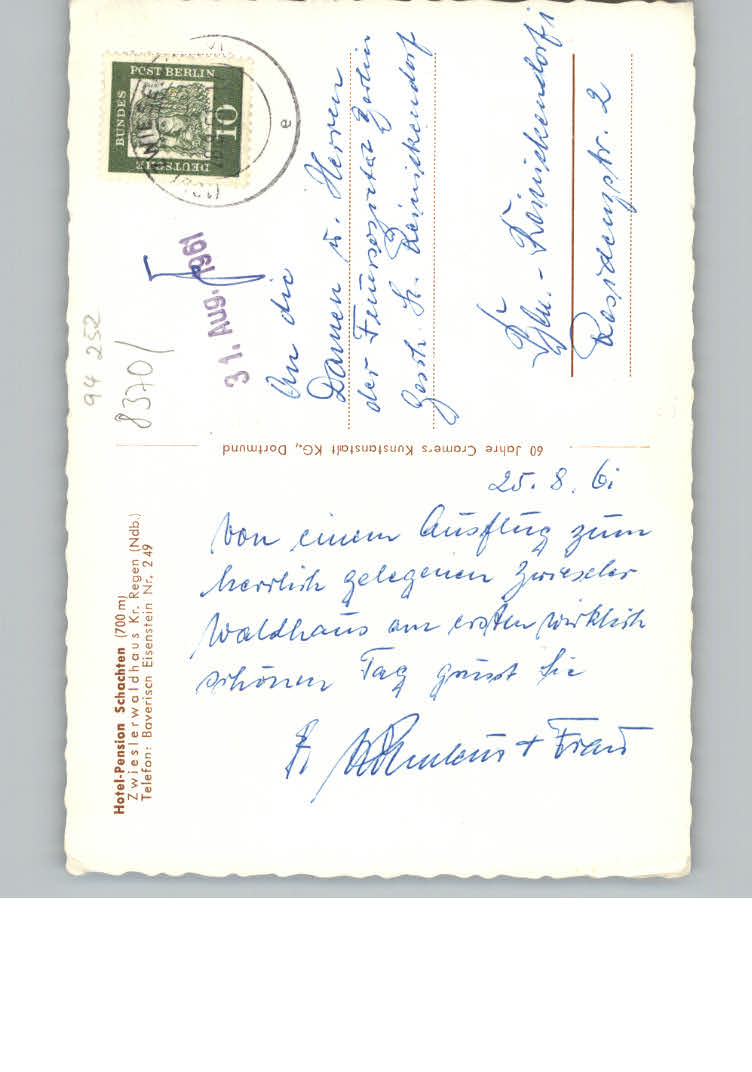 Hotel-Pension Schachten (700 m)
Zwieslerwaldhaus Kr. Regen (Ndb.)
Telefon: Bayerisch Eisenstein Nr. 249
25. 8. 61
Von einem Ausflug zum
herrlich gelegenen Zwieseler
Waldhaus am ersten wirklich
schönen Tag grüsst Sie
+ Frau
60 Jahre Cramers Kunstanstalt KG., Dortmund
94 252
8370/
31. Aug. 1961
DEUTSCHE
BUNDES
POST BERLIN
10
e
An die
Damen u. Herren
der Feuersozietät Berlin
Gesch. St. Reinickendorf
Bln.-Reinickendorf 1
Residenzstr. 2